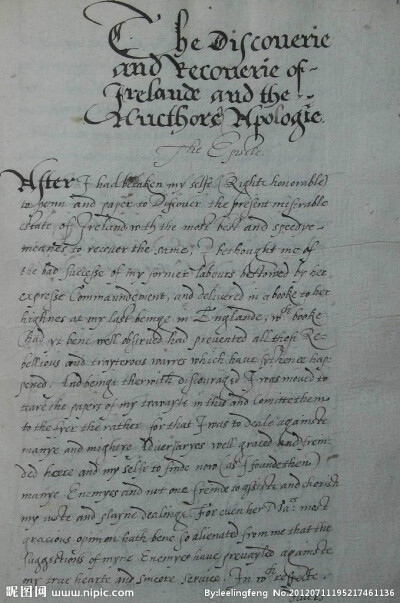 The Discouerie
and Recouerie of
Irelande and the
Authors Apologie.
The Epistle.
After I had betaken my selfe (Righte honorable)
to penn and paper to Discover the present miserable
estate of Ireland wth the most best and speedye
meanes to recover the same, I bethought me of
the bad successe of my former labours bestowed by her
expresse Commaundement, and delivered in a booke to her
highnes at my last beinge in Englande, wch booke
had yt bene well observed had prevented all those Re-
bellious and trayterous warrs which have sythence hap-
pened. And beinge therwith discouraged I was moved to
teare the papers of my travayle in this and Comitte them
to the fyer the rather for that I was to deale againste
manye and mightye Adversaryes well graced and frein-
ded heere and my selfe to finde now (as I founde then)
manye Enemyes and not one freinde to assiste and
my and playne dealinge. For even her Mats most
gracious opinion hath bene so alienated from me that the
Suggestions of myne Enemyes have prevayled againste
my true hearte and sincere service. In wch respecte
昵图网 www.nipic.com
By:leelingfeng No.20120711195217461136